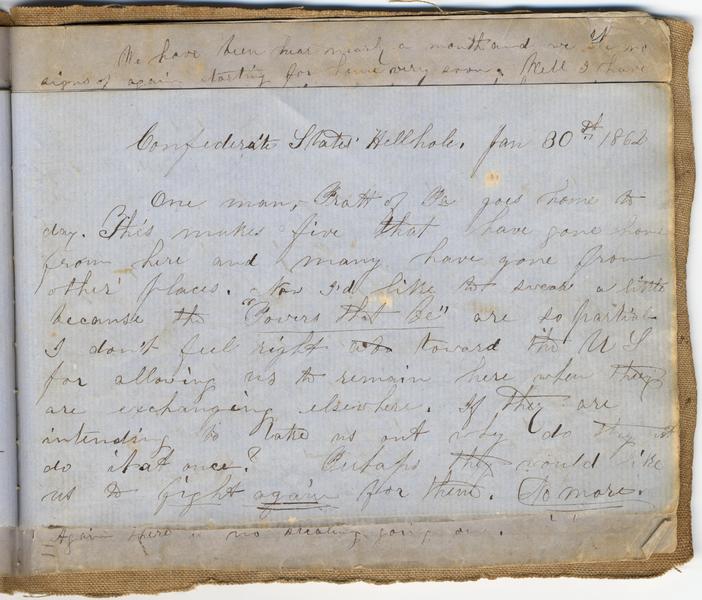 We have been hear nearly a month and we see no
signs of again starting for home very soon. Well I have
Confederate States Hellhole. Jan 30th 1862
One man, Pratt of Pa goes home to
day. This makes five that have gone home
from here and many have gone from
other places. Now I'd like to swear a little
because the "Powers that be" are so partial
I don't feel right toward the U S
for allowing us to remain here when they
are exchanging elsewhere. If they are
intending to take us out why do they not
do it at once? Perhaps they would like
us to fight again for them. No more.
Again there is no going on.